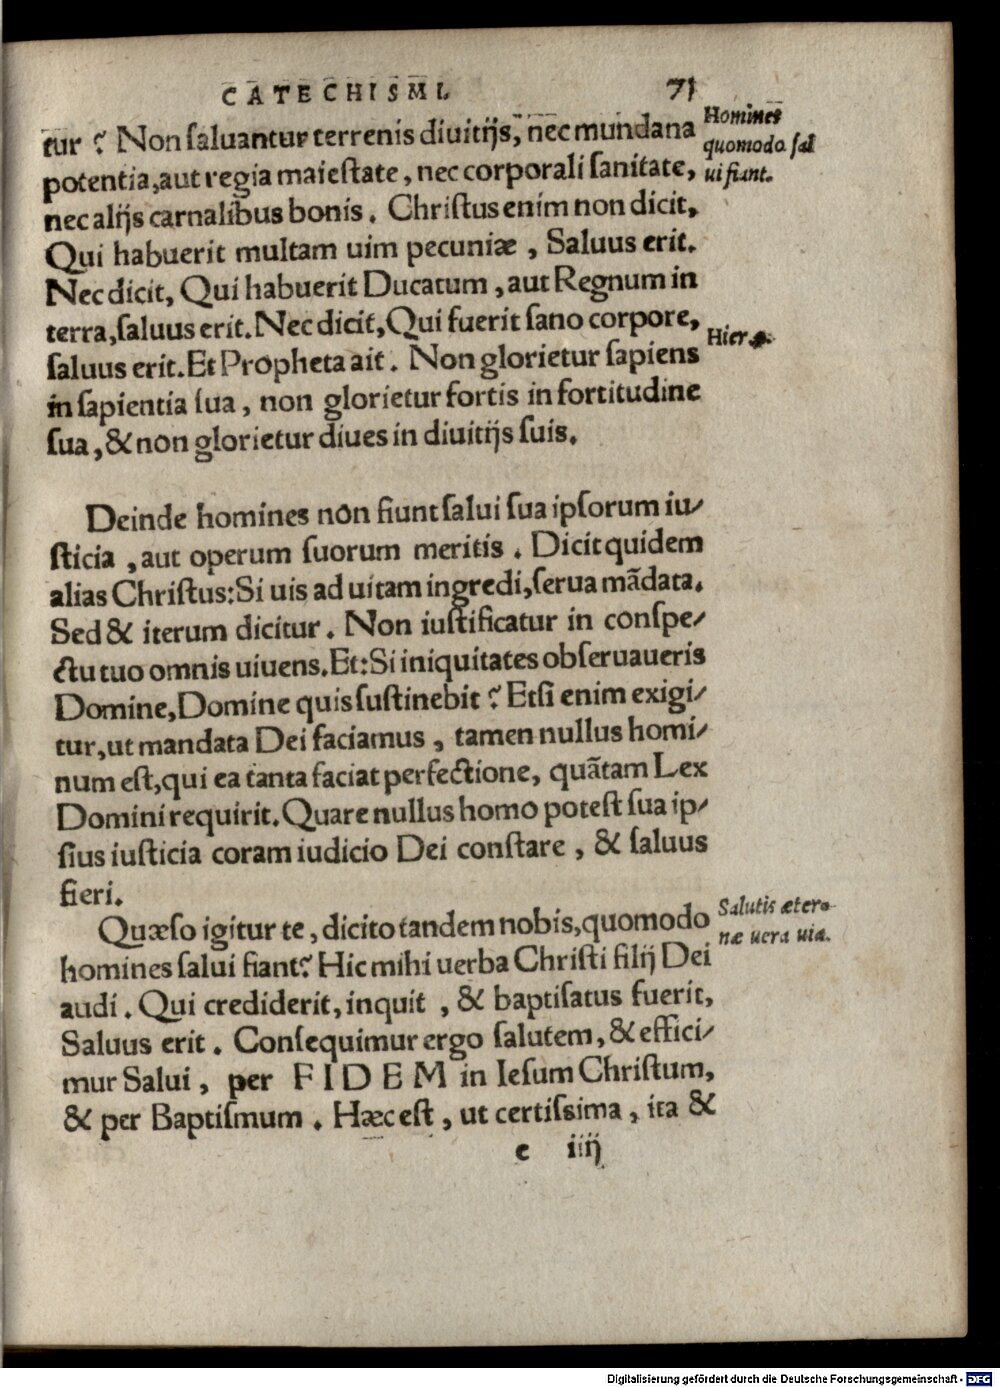 CATECHISMI. 71
tur? Non ſaluantur terrenis diuitijs, nec mundana
Homines
quomodo ſal
potentia, aut regia maieſtate, nec corporali ſanitate,
ui fiant.
nec alijs carnalibus bonis. Chriſtus enim non dicit,
Qui habuerit multam uim pecuniæ, Saluus erit.
Nec dicit, Qui habuerit Ducatum, aut Regnum in
terra, ſaluus erit. Nec dicit, Qui fuerit ſano corpore,
Hier 9.
ſaluus erit. Et Propheta ait. Non glorietur ſapiens
in ſapientia ſua, non glorietur fortis in fortitudine
ſua, & non glorietur diues in diuitijs ſuis.
Deinde homines non fiunt ſalui ſua ipſorum iu⸗
ſticia, aut operum ſuorum meritis. Dicit quidem
alias Chriſtus: Si uis ad uitam ingredi, ſerua mãdata.
Sed & iterum dicitur. Non iuſtificatur in conſpe⸗
ctu tuo omnis uiuens. Et: Si iniquitates obſeruaueris
Domine, Domine quis ſuſtinebit? Etſi enim exigi⸗
tur, ut mandata Dei faciamus, tamen nullus homi⸗
num eſt, qui ea tanta faciat perfectione, quãtam Lex
Domini requirit. Quare nullus homo poteſt ſua ip⸗
ſius iuſticia coram iudicio Dei conſtare, & ſaluus
fieri.
Quæſo igitur te, dicito tandem nobis, quomodo
Salutis æter⸗
næ uera uia.
homines ſalui fiant? Hic mihi uerba Chriſti filij Dei
audi. Qui crediderit, inquit, & baptiſatus fuerit,
Saluus erit. Conſequimur ergo ſalutem, & effici⸗
mur Salui, per FIDEM in Ieſum Chriſtum,
& per Baptiſmum. Hæc eſt, ut certiſsima, ita &
e iiij
Digitalisierung gefördert durch die Deutsche Forschungsgemeinschaft - DFG